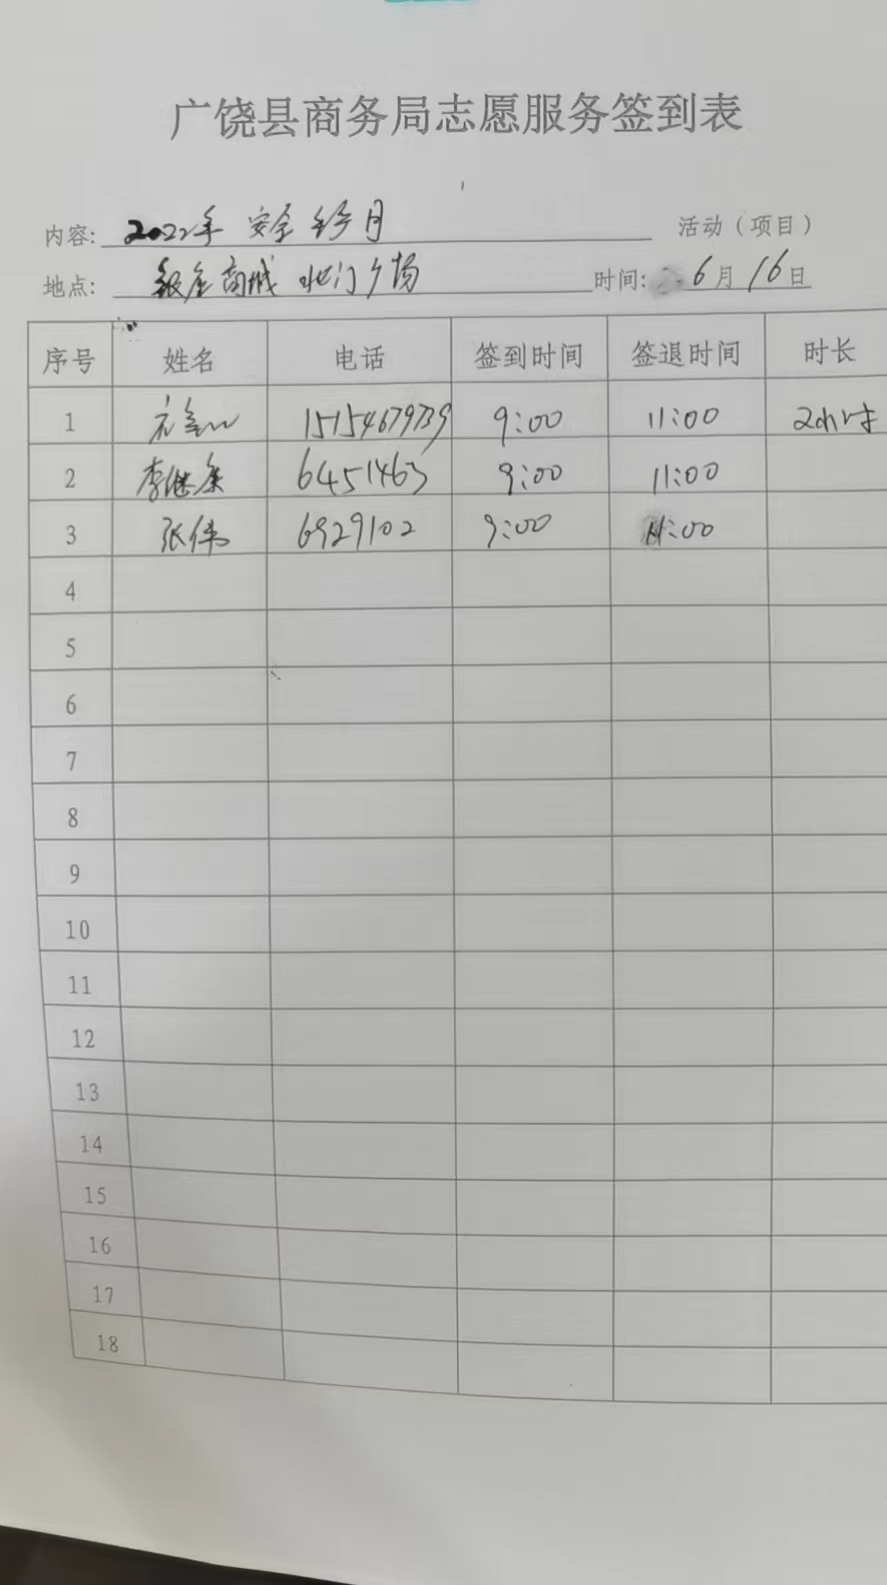 广饶县商务局志愿服务签到表
内容: 2022年 安全 月 活动（项目）
地点: 银座商城 北门广场 时间: 6月16日
序号 姓名 电话 签到时间 签退时间 时长
1 15154679739 9:00 11:00 2小时
2 李继 6451463 9:00 11:00
3 张伟 6929102 9:00 11:00
4
5
6
7
8
9
10
11
12
13
14
15
16
17
18